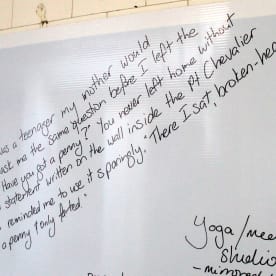 was a teenager my mother would
ask me the same question before I left the
Have you got a penny?' You never left home without
statement written on the wall inside the Pt Chevalier
reminded me to use it sparingly. 'There I sat, broken-hea
a penny I only farted.'
Yoga/mee
studio